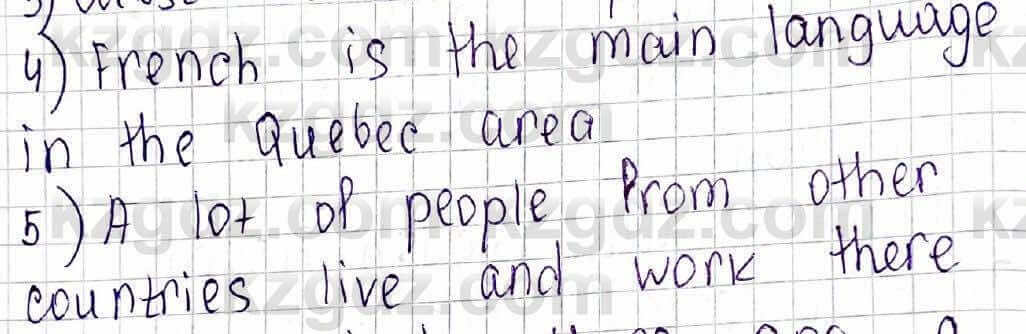 4) French is the main language
in the Quebec area
5) A lot of people from other
countries live and work there